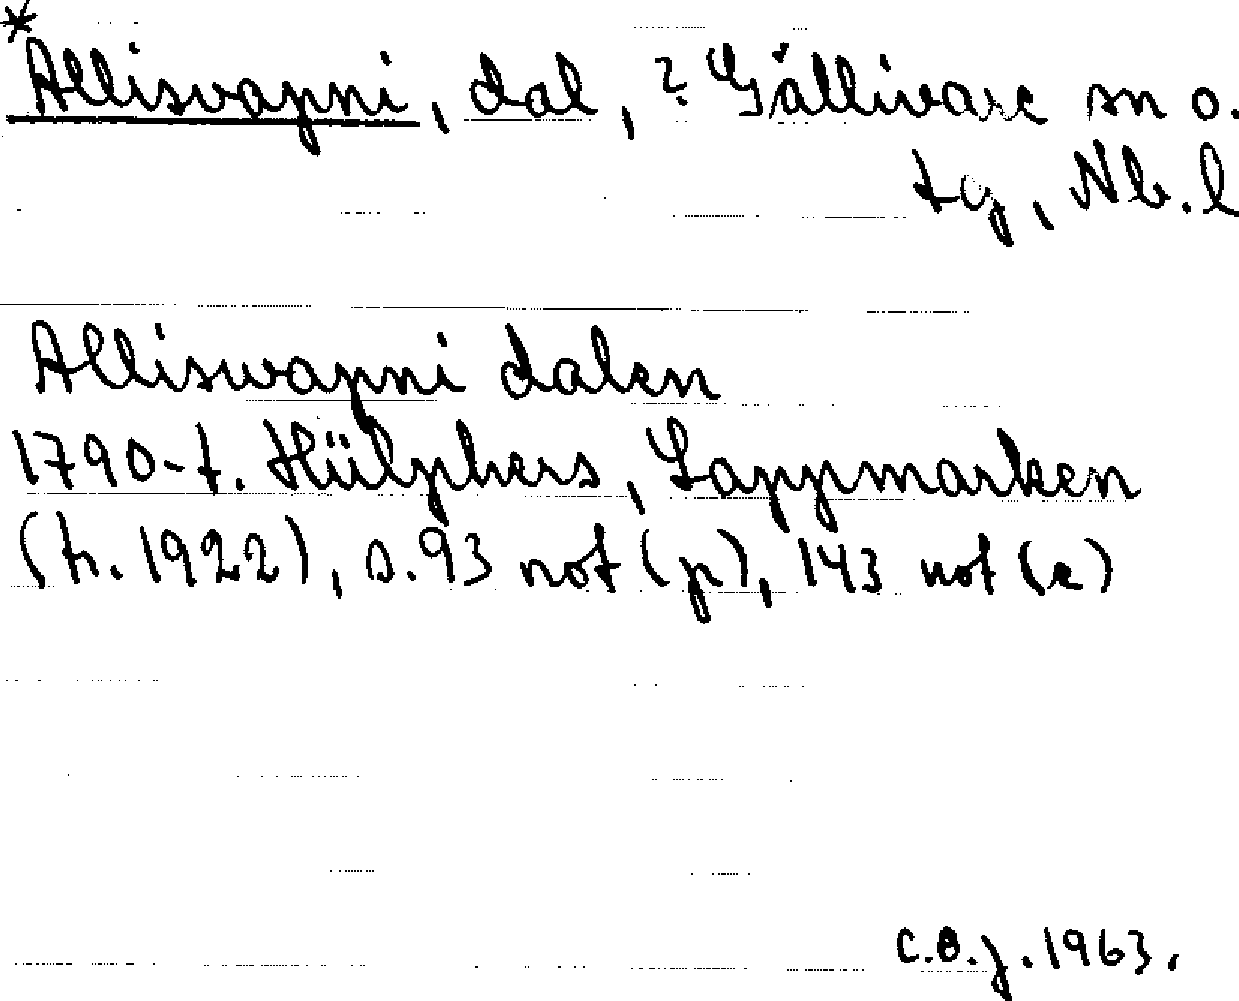 *Alliswapni, dal, ? Gällivare sn o.
tg, Nb. l
Alliswapni dalen
1790-t. Hülphers, Lappmarken
(tr. 1922), s. 93 not (p), 143 not (e)
C.O.J. 1963.